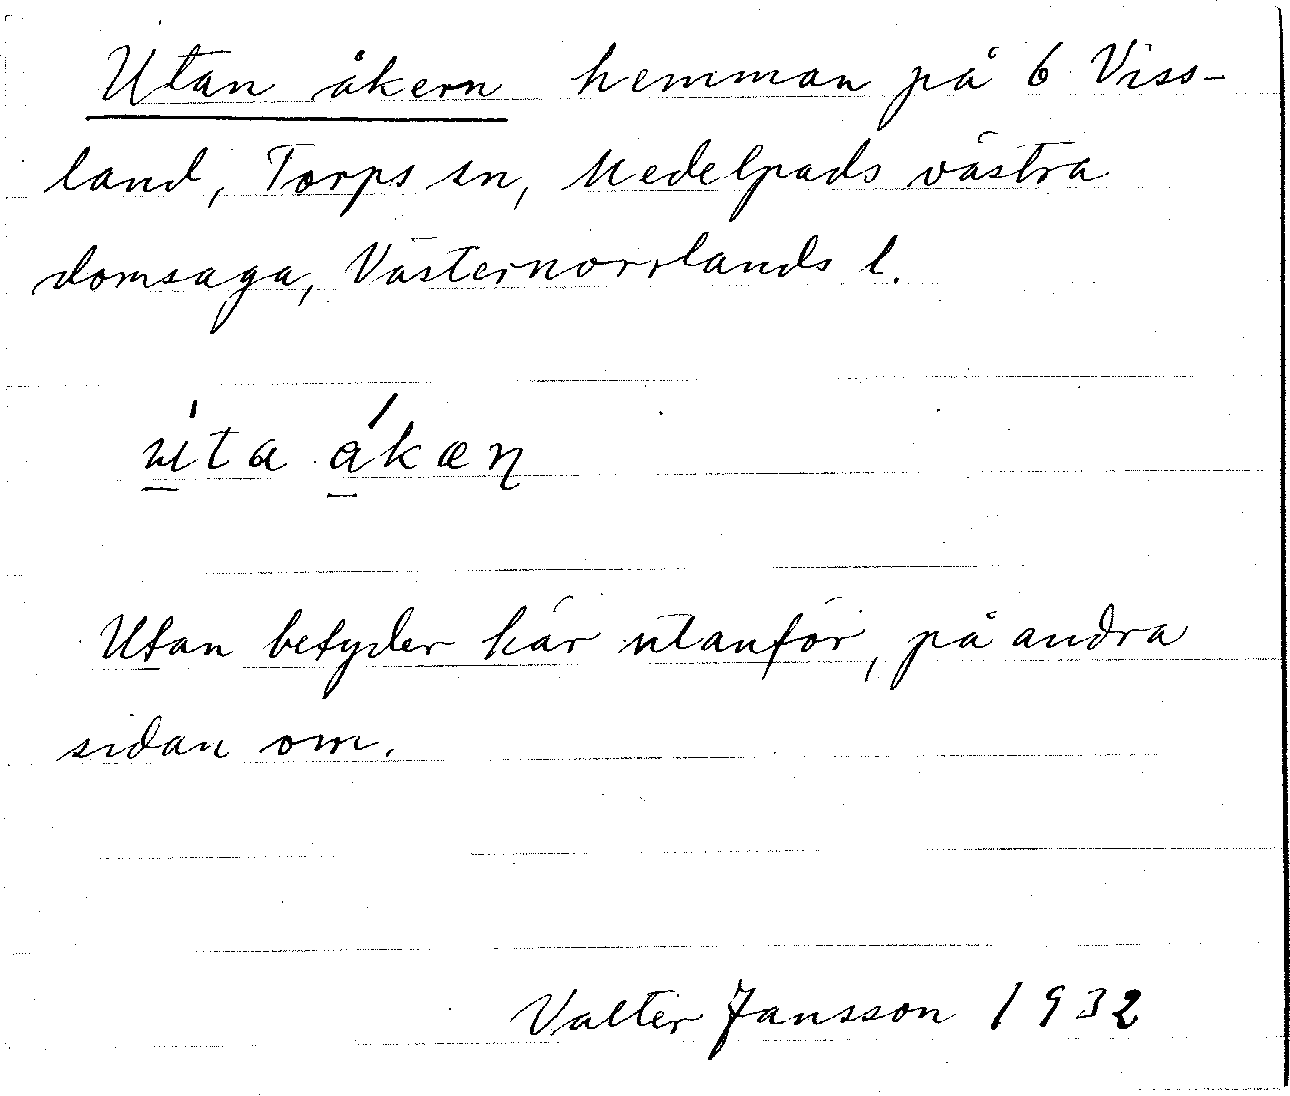 Utan åkern hemman på 6 Viss-
land, Torps sn, Medelpads västra
domsaga, Västernorrlands l.
ùta ákæɳ
Utan betyder här utanför, på andra
sidan om.
Valter Jansson 1932